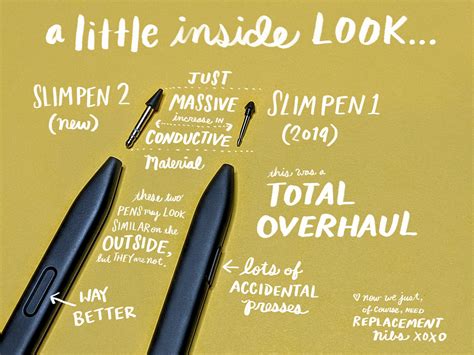 a little inside LOOK...
SLIM PEN 2
(new)
JUST
MASSIVE
increase in
CONDUCTIVE
Material
SLIM PEN 1
(2019)
these two
PENS may LOOK
SIMILAR on the
OUTSIDE,
but THEY are not.
this was a
TOTAL
OVERHAUL
WAY
BETTER
lots of
ACCIDENTAL
presses
♡ now we just,
of course, NEED
REPLACEMENT
nibs XOXO